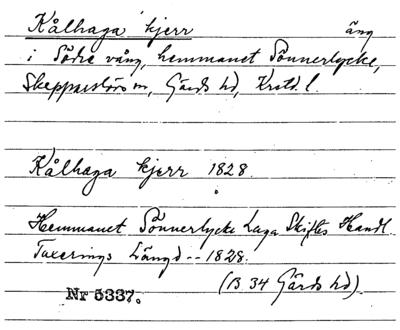 Kålhaga kjerr äng
i Södre vång, hemmanet Sönnerlycke,
Skepparslövs sn, Gärds hd, Krstd. l.
Kålhaga kjerr 1828.
Hemmanet Sönnerlycke Laga Skiftes Handl.
Taxerings Längd -- 1828.
(B 34 Gärds hd).
Nr 5337.